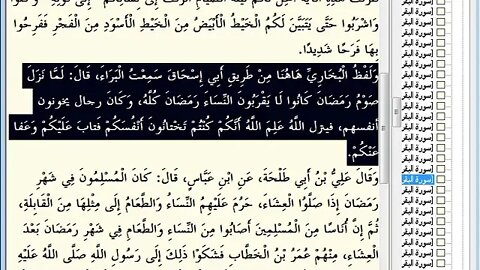 وَاشْرَبُوا حَتَّى يَتَبَيَّنَ لَكُمُ الْخَيْطُ الْأَبْيَضُ مِنَ الْخَيْطِ الْأَسْوَدِ مِنَ الْفَجْرِ فَفَرِحُوا
بِهَا فَرَحًا شَدِيدًا.
وَلَفْظُ الْبُخَارِيِّ هَاهُنَا مِنْ طَرِيقِ أَبِي إِسْحَاقَ سَمِعْتُ الْبَرَاءَ، قَالَ: لَمَّا نَزَلَ
صَوْمُ رَمَضَانَ كَانُوا لَا يَقْرَبُونَ النِّسَاءَ رَمَضَانَ كُلَّهُ، وَكَانَ رجال يخونون
أنفسهم، فينزل اللَّهُ عَلِمَ اللَّهُ أَنَّكُمْ كُنْتُمْ تَخْتانُونَ أَنْفُسَكُمْ فَتابَ عَلَيْكُمْ وَعَفا
عَنْكُمْ.
وَقَالَ عَلِيُّ بْنُ أَبِي طَلْحَةَ، عَنِ ابْنِ عَبَّاسٍ، قَالَ: كَانَ الْمُسْلِمُونَ فِي شَهْرِ
رَمَضَانَ إِذَا صَلَّوُا الْعِشَاءَ، حَرُمَ عَلَيْهِمُ النِّسَاءُ وَالطَّعَامُ إِلَى مِثْلِهَا مِنَ الْقَابِلَةِ،
ثُمَّ إِنَّ أُنَاسًا مِنَ الْمُسْلِمِينَ أَصَابُوا مِنَ النِّسَاءِ وَالطَّعَامِ فِي شَهْرِ رَمَضَانَ بَعْدَ
الْعِشَاءِ، مِنْهُمْ عُمَرُ بْنُ الْخَطَّابِ فَشَكَوْا ذَلِكَ إِلَى رَسُولِ اللَّهِ صَلَّى اللَّهُ عَلَيْهِ
[سورة البقر
[سورة البقر
[سورة البقر
[سورة البقر
[سورة البقر
[سورة البقر
[سورة البقر
[سورة البقر
[سورة البقر
[سورة البقر
[سورة البقر
[سورة البقر
[سورة البقر
[سورة البقر